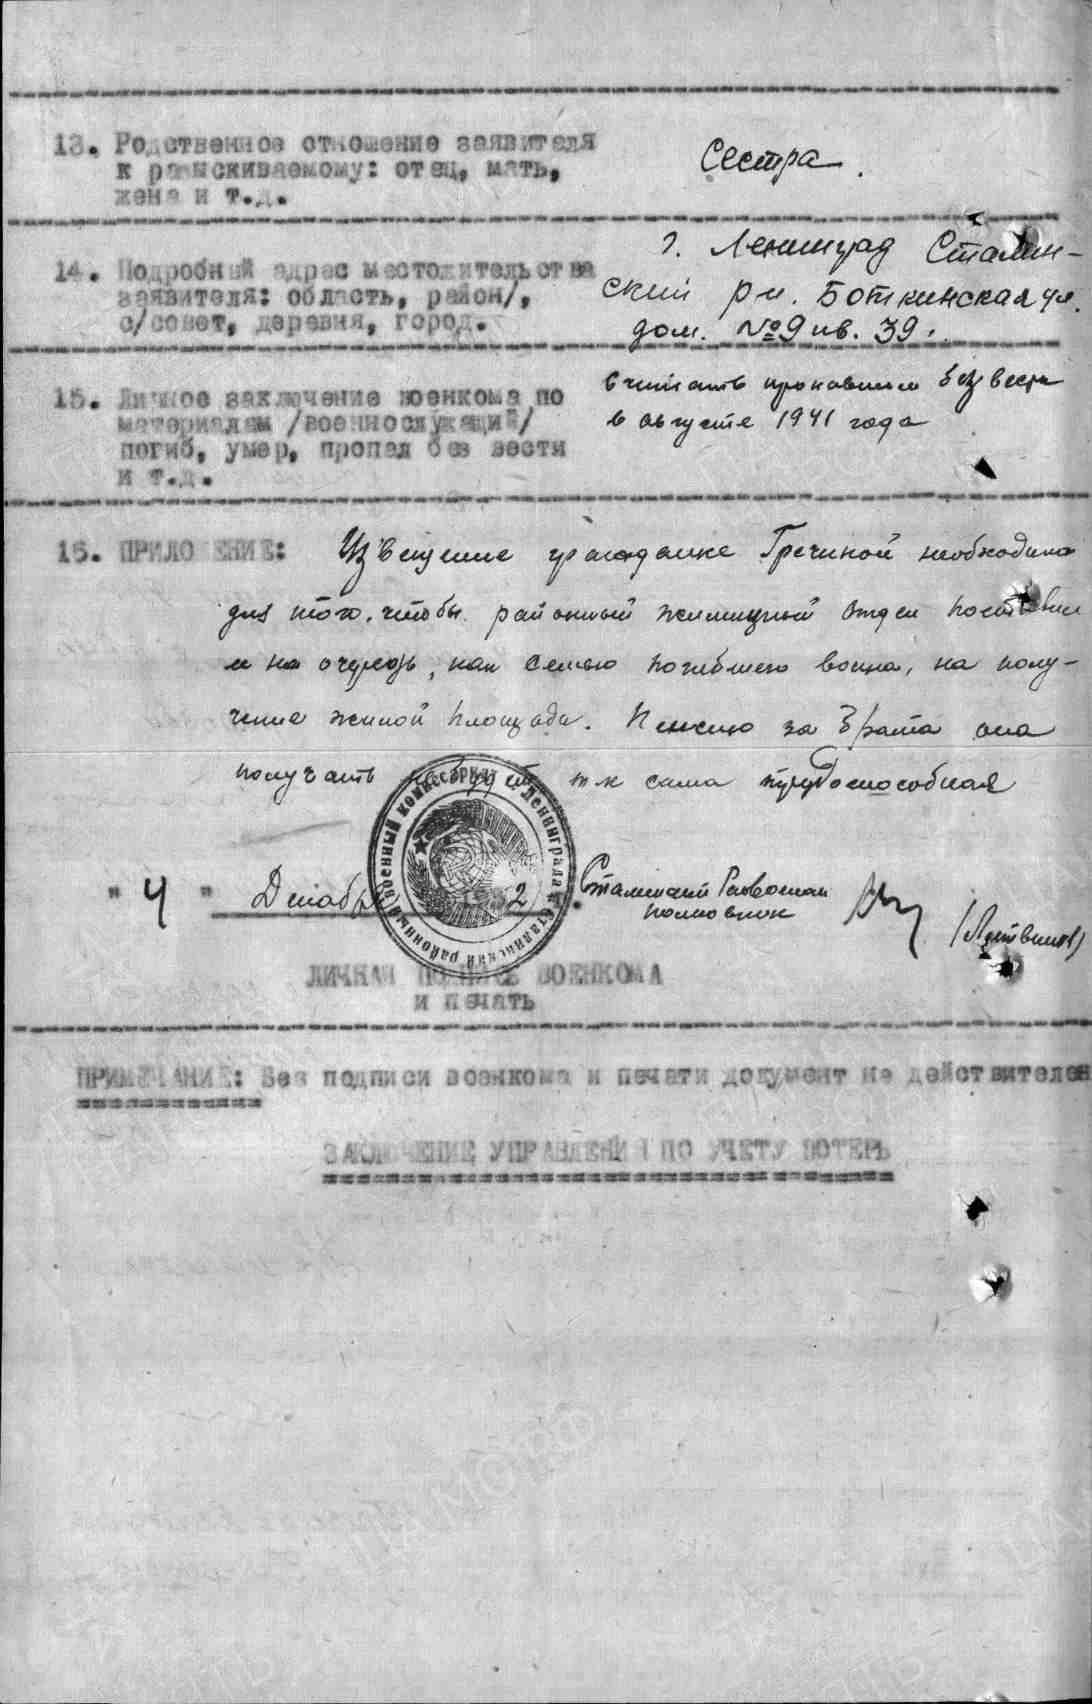 13. Родственное отношение заявителя
к разыскиваемому: отец, мать,
жена и т.д.
Сестра.
14. Подробный адрес местожительства
заявителя: область, район/,
с/совет, деревня, город.
г. Ленинград Сталин-
ский р-н. Боткинская ул.
дом. №9 кв. 39.
15. Личное заключение военкома по
материалам /военнослужащий/
погиб, умер, пропал без вести
и т.д.
считать пропавшим без вести
в августе 1941 года
16. ПРИЛОЖЕНИЕ: Извещение гражданке Гречиной необходимо
для того, чтобы районный жилищный отдел поставил
и на очередь, как семью погибшего воина, на полу-
чение жилой площади. Пенсию за брата она
получать не будет т к сама трудоспособная
"4" Декабря 1952
Сталинский Райвоенком
полковник
(Литвинов)
районный военный комиссариат г. Ленинграда Сталинский
ЛИЧНАЯ ПОДПИСЬ ВОЕНКОМА
и печать
ПРИМЕЧАНИЕ: Без подписи военкома и печати документ не действителен
ЗАКЛЮЧЕНИЕ УПРАВЛЕНИЯ ПО УЧЕТУ ПОТЕРЬ